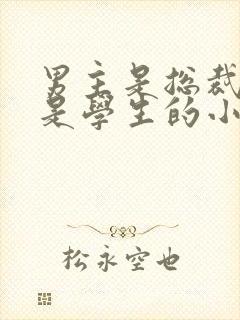 男主是总裁
是學生的小
松永空也